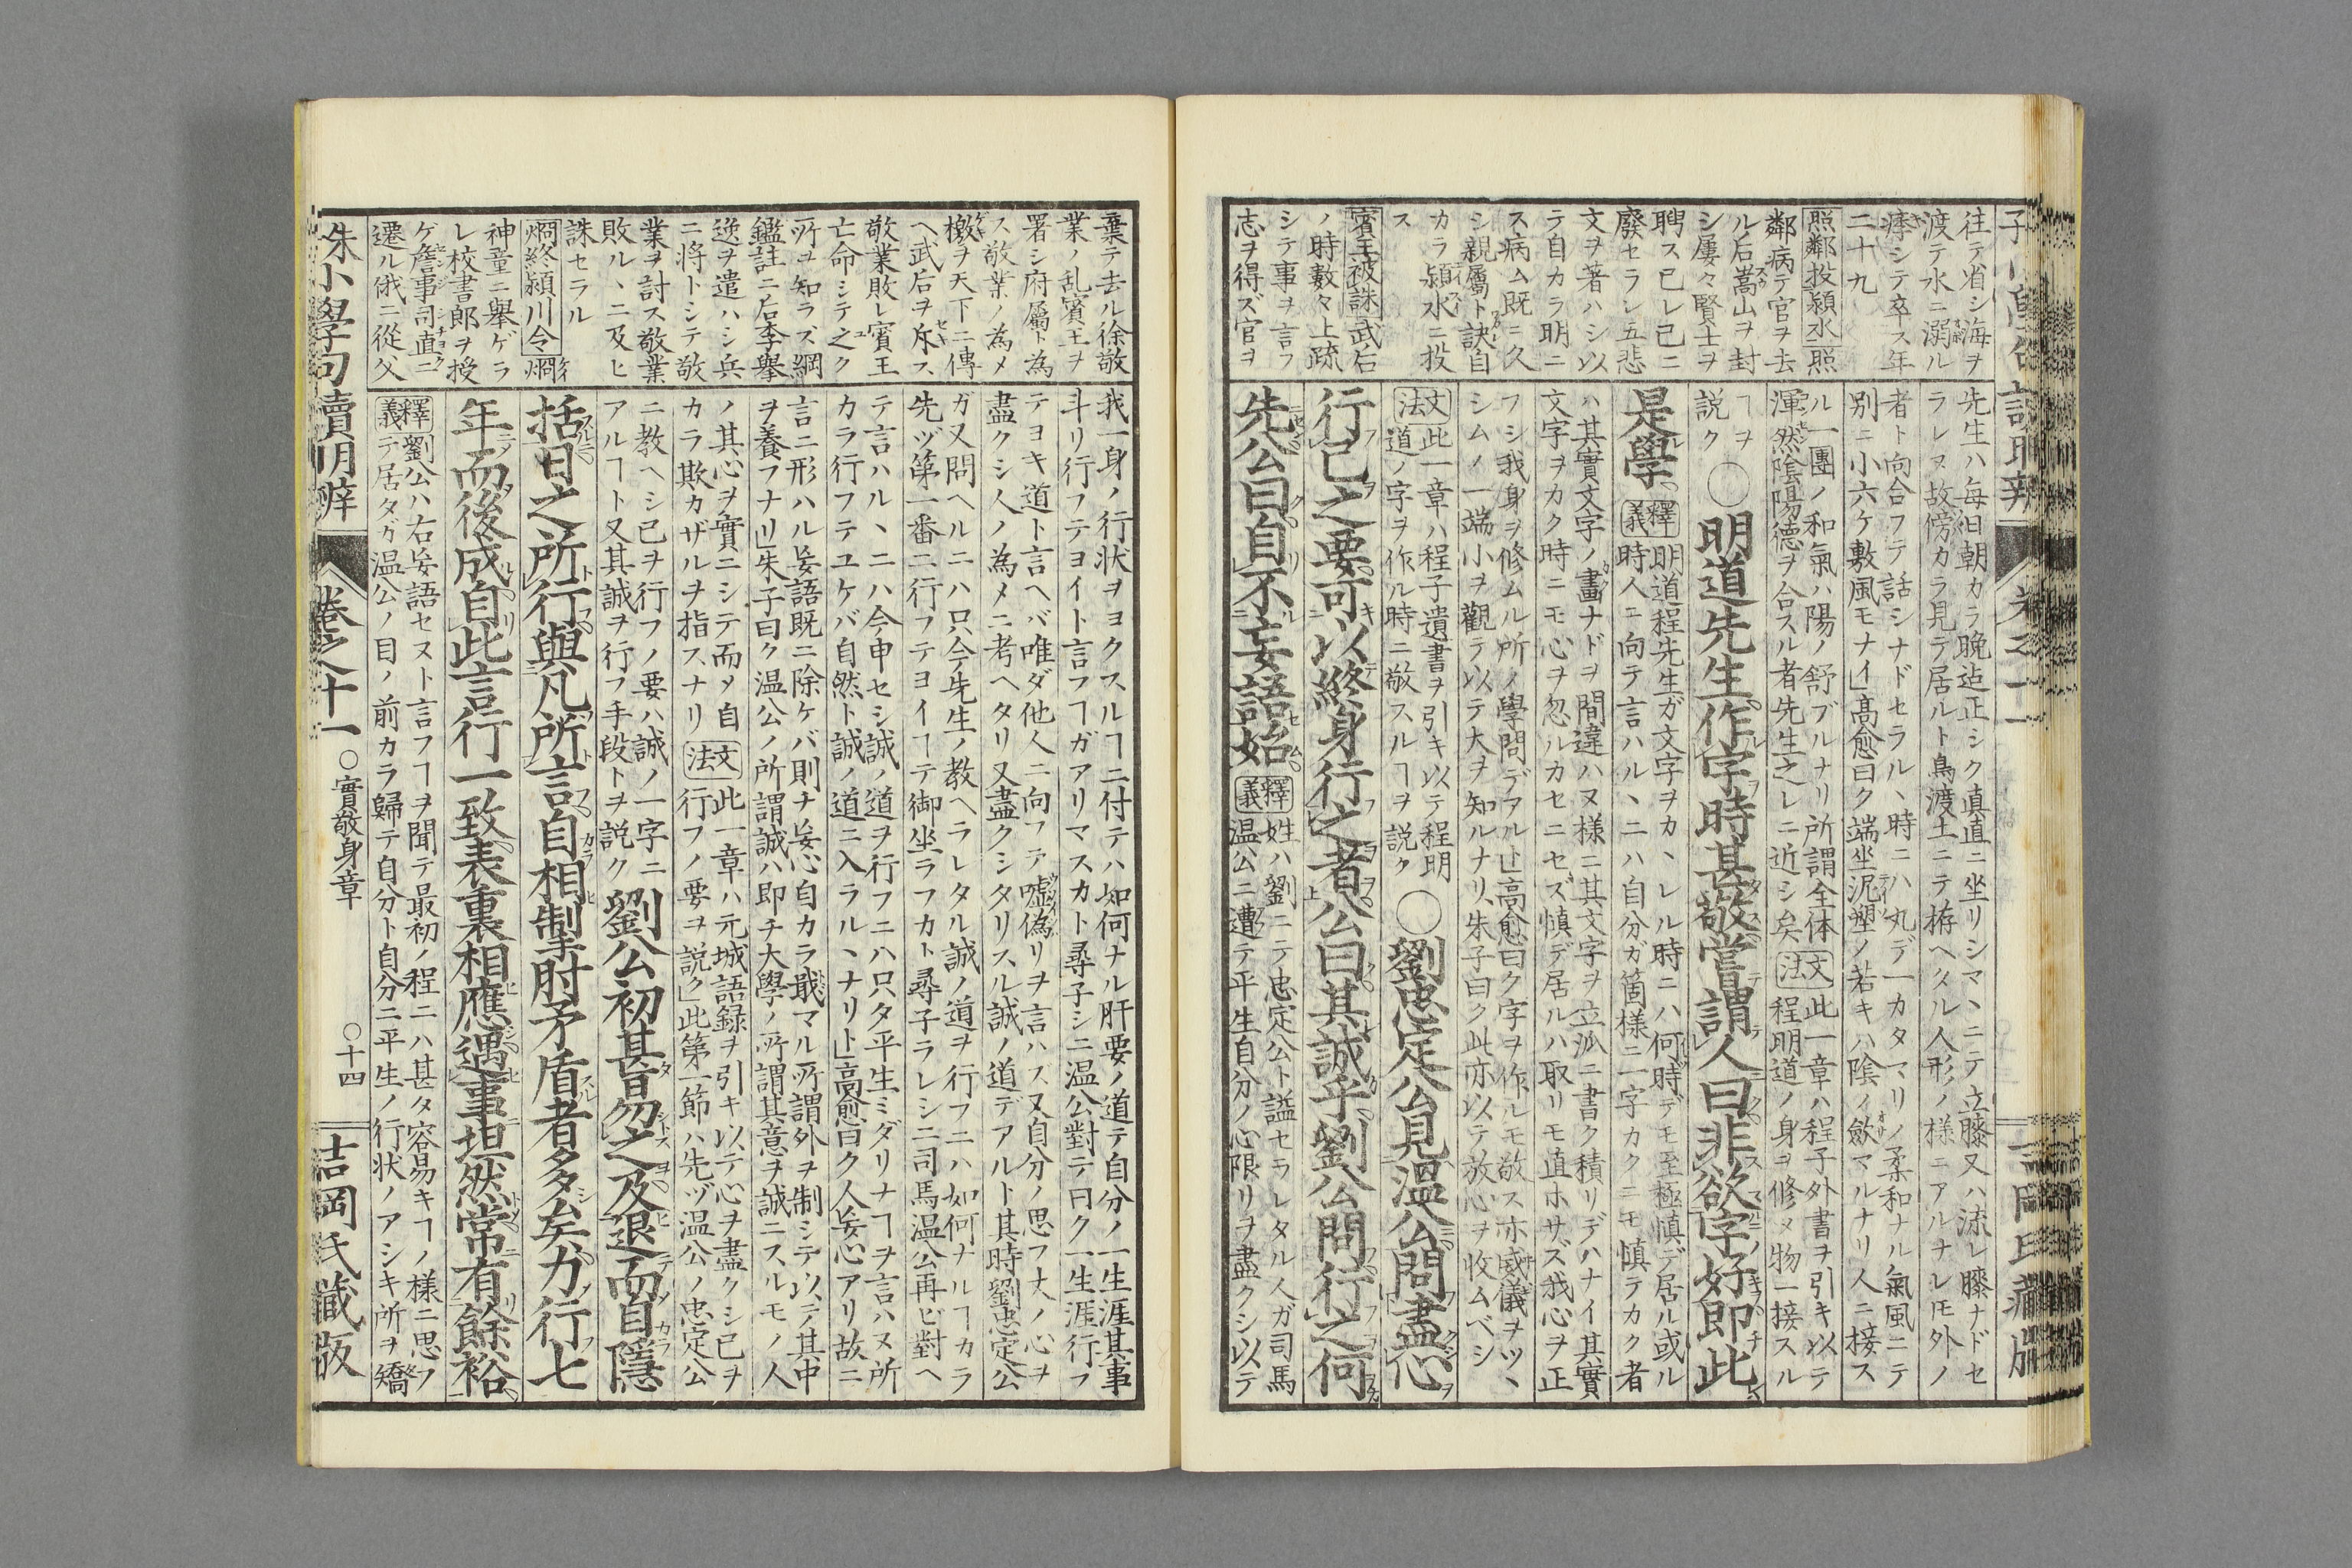 往テ省シ海ヲ
渡テ水ニ溺ル
瘴シテ卒ス年
二十九
照鄰投潁水 照
鄰病テ官ヲ去
ル后嵩山ヲ封
シ屢々賢士ヲ
聘ス已レ已ニ
廢セラレ五悲
文ヲ著ハシ以
テ自カラ明ニ
ス病ム既ニ久
シ親屬ト訣自
カラ潁水ニ投
ス
賓王被誅 武后
ノ時數々上疏
シテ事ヲ言フ
志ヲ得ズ官ヲ
先生ハ毎日朝カラ晩迠正シク真直ニ坐リシマヽニテ立膝又ハ流レ膝ナドセ
ラレヌ故傍カラ見テ居ルト鳥渡土ニテ拵ヘタル人形ノ様ニアルナレ𪜈外ノ
者ト向合フテ話シナドセラルヽ時ニハ丸デ一カタマリノ柔和ナル氣風ニテ
別ニ小六ケ敷風モナイ」高愈曰ク端坐泥塑ノ若キハ陰ノ斂マルナリ人ニ接ス
ル一團ノ和氣ハ陽ノ舒ブルナリ所謂全体
渾然陰陽德ヲ合スル者先生之レニ近シ矣
文法 此一章ハ程子外書ヲ引キ以テ
程明道ノ身ヲ修メ物ニ接スル
ヿヲ
説ク
〇明道先生作字時甚敬嘗謂人曰非欲字好即此
是學
釋義 明道程先生ガ文字ヲカヽレル時ニハ何時デモ至極慎デ居ル或ル
時人ニ向テ言ハルヽニハ自分ガ箇様ニ一字カクニモ慎ラカク者
ハ其實文字ノ畫ナドヲ間違ハヌ様ニ其文字ヲ立派ニ書ク積リデハナイ其實
文字ヲカク時ニモ心ヲ忽ルカセニセズ慎デ居ルハ取リモ直ホサズ我心ヲ正
フシ我身ヲ修ムル所ノ學問デアル」高愈曰ク字ヲ作ルモ敬ス亦威儀ヲツヽ
シムノ一端小ヲ觀テ以テ大ヲ知ルナリ、朱子曰ク此亦以テ放心ヲ收ムベシ
文法 此一章ハ程子遺書ヲ引キ以テ程明
道ノ字ヲ作ル時ニ敬スルヿヲ説ク
〇劉忠定公見溫公問盡心
行己之要可以終身行之者公曰其誠乎劉公問行之何
先公曰自不妄語始
釋義 姓ハ劉ニテ忠定公ト諡セラレタル人ガ司馬
温公ニ遭テ平生自分ノ心限リヲ盡クシ以テ
棄テ去ル徐敬
業ノ乱賓王ヲ
署シ府屬ト為
ス敬業ノ為メ
檄ヲ天下ニ傳
ヘ武后ヲ斥ス
敬業敗レ賓王
亡命シテ之ク
所ヲ知ラズ綱
鑑註ニ后李擧
逸ヲ遣ハシ兵
ニ將トシテ敬
業ヲ討ス敬業
敗ル、ニ及ヒ
誅セラル
烱終潁川令 烱
神童ニ舉ゲラ
レ校書郎ヲ授
ゲ詹事司直ニ
遷ル俄ニ從父
我一身ノ行状ヲヨクスルヿニ付テハ如何ナル肝要ノ道テ自分ノ一生涯其事
斗リ行フテヨイト言フヿガアリマスカト尋子シニ温公對テ曰ク一生涯行フ
テヨキ道ト言ヘバ唯ダ他人ニ向フテ嘘偽リヲ言ハス又自分ノ思フ丈ノ心ヲ
盡クシ人ノ為メニ考ヘタリ又盡クシタリスル誠ノ道デアルト其時劉忠定公
ガ又問ヘルニハ只今先生ノ教ヘラレタル誠ノ道ヲ行フニハ如何ナルヿカラ
先ヅ第一番ニ行フテヨイヿテ御坐ラフカト尋子ラレシニ司馬温公再ビ對ヘ
テ言ハルヽニハ今申セシ誠ノ道ヲ行フニハ只タ平生ミダリナヿヲ言ハヌ所
カラ行フテユケバ自然ト誠ノ道ニ入ラルヽナリト」高愈曰ク人妄心アリ故ニ
言ニ形ハル妄語既ニ除ケバ則チ妄心自カラ戢マル所謂外ヲ制シテ以テ其中
ヲ養フナリ」朱子曰ク温公ノ所謂誠ハ即チ大學ノ所謂其意ヲ誠ニスルモノ人
ノ其心ヲ實ニシテ而メ自
カラ欺カザルヲ指スナリ
文法 此一章ハ元城語録ヲ引キ以テ心ヲ盡クシ己ヲ
行フノ要ヲ説ク」此第一節ハ先ヅ温公ノ忠定公
ニ教ヘシ己ヲ行フノ要ハ誠ノ一字ニ
アルヿト又其誠ヲ行フ手段トヲ説ク
劉公初甚易之及退而自隱
括日之所行與凡所言自相掣肘矛盾者多矣力行七
年而後成自此言行一致表裏相應遇事坦然常有餘裕
釋義 劉公ハ右妄語セヌト言フヿヲ聞テ最初ノ程ニハ甚タ容易キヿノ様ニ思フ
テ居タガ温公ノ目ノ前カラ歸テ自分ト自分ニ平生ノ行状ノアシキ所ヲ矯
朱小學句讀明辨 卷之十一 〇實敬身章 〇十四 吉岡氏藏版